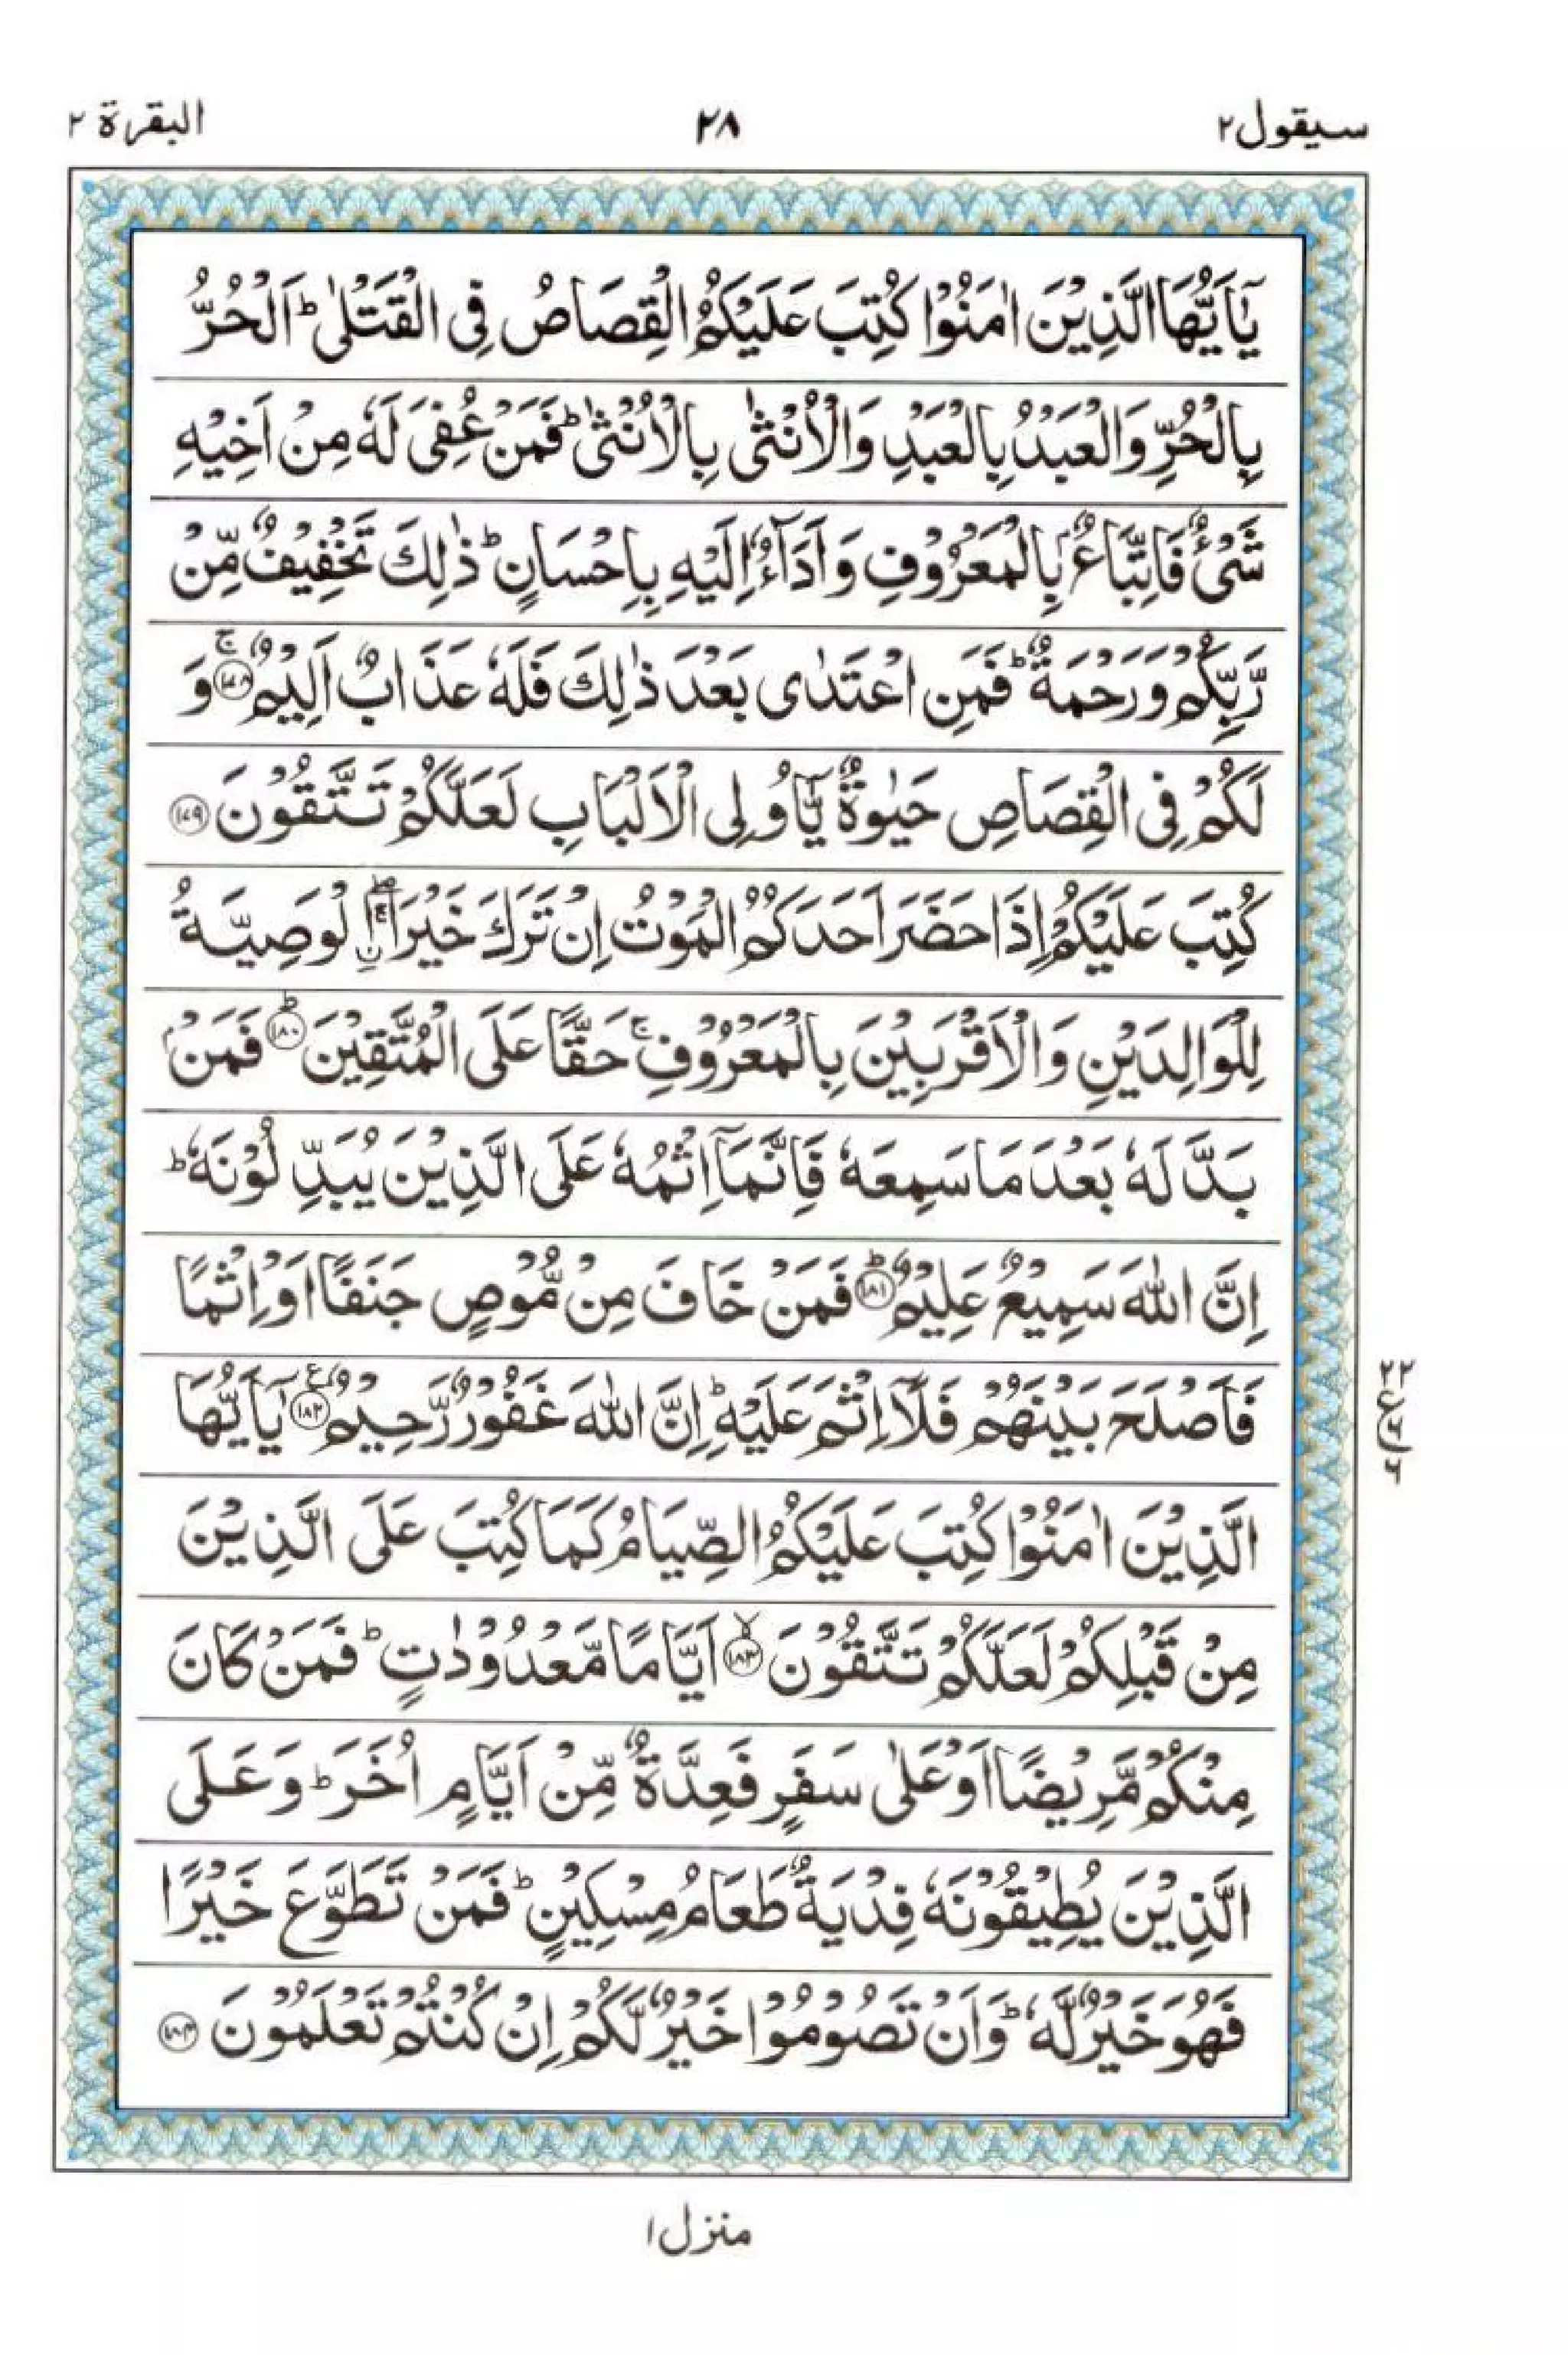 سيقول ٢ ٢٨ البقرة ٢
يٰٓاَيُّهَا الَّذِيْنَ اٰمَنُوْا كُتِبَ عَلَيْكُمُ الْقِصَاصُ فِى الْقَتْلٰى ؕ اَلْحُرُّ
بِالْحُرِّ وَالْعَبْدُ بِالْعَبْدِ وَالْاُنْثٰى بِالْاُنْثٰى ؕ فَمَنْ عُفِىَ لَهٗ مِنْ اَخِيْهِ
شَىْءٌ فَاتِّبَاعٌۢ بِالْمَعْرُوْفِ وَاَدَآءٌ اِلَيْهِ بِاِحْسَانٍ ؕ ذٰلِكَ تَخْفِيْفٌ مِّنْ
رَّبِّكُمْ وَرَحْمَةٌ ؕ فَمَنِ اعْتَدٰى بَعْدَ ذٰلِكَ فَلَهٗ عَذَابٌ اَلِيْمٌ ۚ﴿۱۷۸﴾ وَ
لَكُمْ فِى الْقِصَاصِ حَيٰوةٌ يّٰٓاُولِى الْاَلْبَابِ لَعَلَّكُمْ تَتَّقُوْنَ ﴿۱۷۹﴾
كُتِبَ عَلَيْكُمْ اِذَا حَضَرَ اَحَدَكُمُ الْمَوْتُ اِنْ تَرَكَ خَيْرَا ۖۚ اۨلْوَصِيَّةُ
لِلْوَالِدَيْنِ وَالْاَقْرَبِيْنَ بِالْمَعْرُوْفِ ۚ حَقًّا عَلَى الْمُتَّقِيْنَ ؕ﴿۱۸۰﴾ فَمَنْۢ
بَدَّلَهٗ بَعْدَ مَا سَمِعَهٗ فَاِنَّمَآ اِثْمُهٗ عَلَى الَّذِيْنَ يُبَدِّلُوْنَهٗ ؕ
اِنَّ اللّٰهَ سَمِيْعٌ عَلِيْمٌ ؕ﴿۱۸۱﴾ فَمَنْ خَافَ مِنْ مُّوْصٍ جَنَفًا اَوْ اِثْمًا
فَاَصْلَحَ بَيْنَهُمْ فَلَآ اِثْمَ عَلَيْهِ ؕ اِنَّ اللّٰهَ غَفُوْرٌ رَّحِيْمٌ ﴿۱۸۲﴾ يٰٓاَيُّهَا
الَّذِيْنَ اٰمَنُوْا كُتِبَ عَلَيْكُمُ الصِّيَامُ كَمَا كُتِبَ عَلَى الَّذِيْنَ
مِنْ قَبْلِكُمْ لَعَلَّكُمْ تَتَّقُوْنَ ۙ﴿۱۸۳﴾ اَيَّامًا مَّعْدُوْدٰتٍ ؕ فَمَنْ كَانَ
مِنْكُمْ مَّرِيْضًا اَوْ عَلٰى سَفَرٍ فَعِدَّةٌ مِّنْ اَيَّامٍ اُخَرَ ؕ وَعَلَى
الَّذِيْنَ يُطِيْقُوْنَهٗ فِدْيَةٌ طَعَامُ مِسْكِيْنٍ ؕ فَمَنْ تَطَوَّعَ خَيْرًا
فَهُوَ خَيْرٌ لَّهٗ ؕ وَاَنْ تَصُوْمُوْا خَيْرٌ لَّكُمْ اِنْ كُنْتُمْ تَعْلَمُوْنَ ﴿۱۸۴﴾
منزل ۱